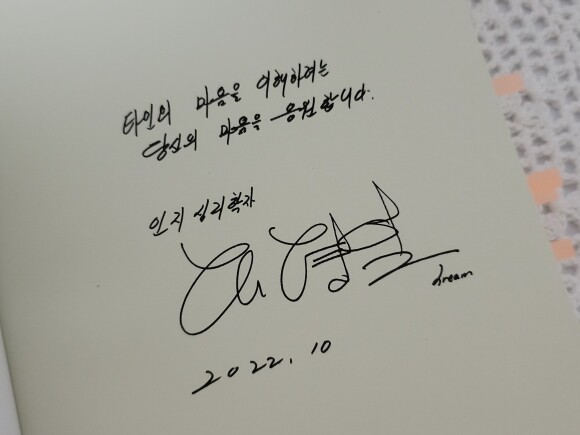 타인의 마음을 이해하려는
당신의 마음을 응원합니다.
인지심리학자
dream
2022. 10